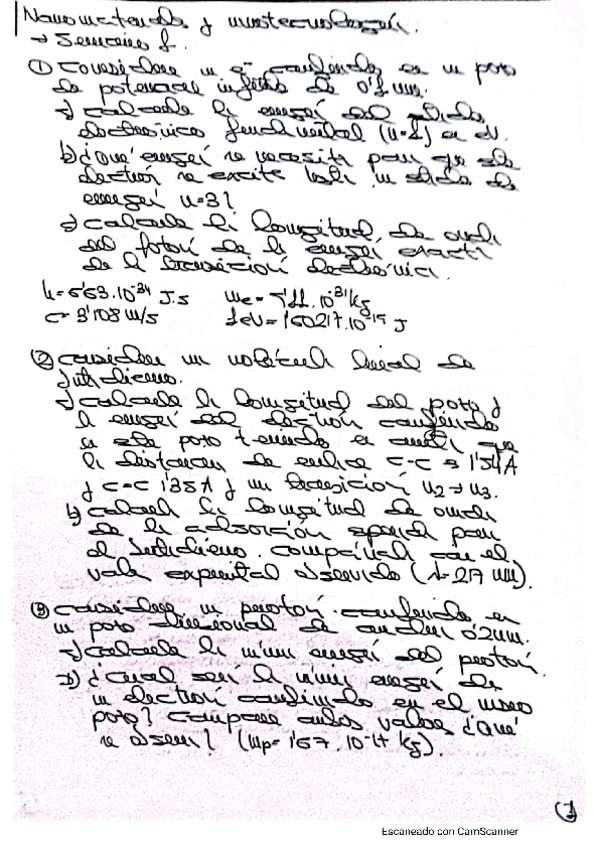 Nanomateriales y nanotecnología.
→ Semana 1.
① Considere un e⁻ confinado en un pozo
de potencial infinito de 0'1 nm.
a) Calcule la energía del estado
electrónico fundamental (n=1) en eV.
b) ¿Qué energía se necesita para que ese
electrón se excite hasta un estado de
energía n=3?
c) Calcule la longitud de onda
del fotón de la energía exacta
de la transición electrónica.
h=6'63·10⁻³⁴ J.s me=9'11·10⁻³¹ kg
c=3·10⁸ m/s 1eV=1'60217·10⁻¹⁹ J
② Considere una molécula lineal de
butadieno.
a) Calcule la longitud del pozo y
la energía del electrón confinado
en este pozo teniendo en cuenta que
la distancia de enlace C-C es 1'54 Å
y C=C 1'35 Å y una transición n₂→n₃.
b) Calcule la longitud de onda
de la adsorción esperada para
el butadieno. Compárela con el
valor experimental observado (λ=217 nm).
③ Considere un protón confinado en
un pozo de anchura 0'2nm.
a) Calcule la mínima energía del protón.
b) ¿Cuál será la mínima energía de
un electrón confinado en el mismo
pozo? Compare ambos valores ¿Qué
se observa? (mp=1'67·10⁻²⁷ kg).
①
Escaneado con CamScanner